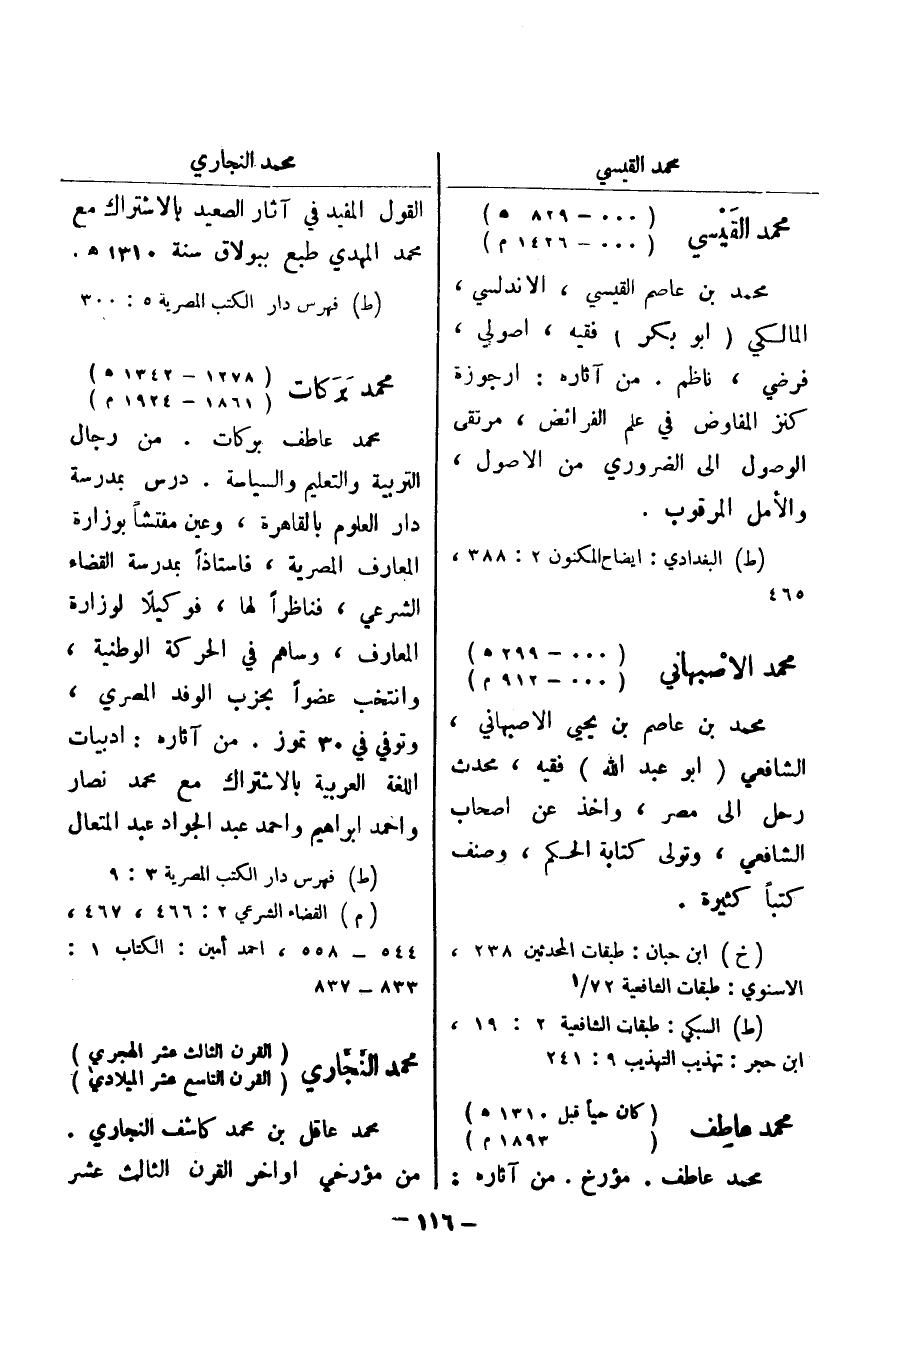 محمد القيسي
محمد القَيْسي
( ٠٠٠ – ٨٢٩ ه )
( ٠٠٠ – ١٤٢٦ م )
محمد بن عاصم القيسي ، الاندلسي ،
المالكي ( ابو بكر ) فقيه ، اصولي ،
فرضي ، ناظم . من آثاره : ارجوزة
كنز المفاوض في علم الفرائض ، مرتقى
الوصول الى الضروري من الاصول ،
والأمل المرقوب .
(ط) البغدادي : ايضاح المكنون ٢ : ٣٨٨ ،
٤٦٥
محمد الاصْبهاني
( ٠٠٠ – ٢٩٩ ه )
( ٠٠٠ – ٩١٢ م )
محمد بن عاصم بن يحيى الاصبهاني ،
الشافعي ( ابو عبد الله ) فقيه ، محدث
رحل الى مصر ، واخذ عن اصحاب
الشافعي ، وتولى كتابة الحكم ، وصنف
كتباً كثيرة .
(خ) ابن حبان : طبقات المحدثين ٢٣٨ ،
الاسنوي : طبقات الشافعية ٧٢/١
(ط) السبكي : طبقات الشافعية ٢ : ١٩ ،
ابن حجر : تهذيب التهذيب ٩ : ٢٤١
محمد عاطِف
( كان حياً قبل ١٣١٠ ه )
( ١٨٩٣ م )
محمد عاطف . مؤرخ . من آثاره :
محمد النجاري
القول المفيد في آثار الصعيد بالاشتراك مع
محمد المهدي طبع ببولاق سنة ١٣١٠ ه .
(ط) فهرس دار الكتب المصرية ٥ : ٣٠٠
محمد بَرَكات
( ١٢٧٨ – ١٣٤٢ ه )
( ١٨٦١ – ١٩٢٤ م )
محمد عاطف بركات . من رجال
التربية والتعليم والسياسة . درس بمدرسة
دار العلوم بالقاهرة ، وعين مفتشاً بوزارة
المعارف المصرية ، فاستاذاً بمدرسة القضاء
الشرعي ، فناظراً لها ، فوكيلًا لوزارة
المعارف ، وساهم في الحركة الوطنية ،
وانتخب عضواً بحزب الوفد المصري ،
وتوفي في ٣٠ تموز . من آثاره : ادبيات
اللغة العربية بالاشتراك مع محمد نصار
واحمد ابراهيم واحمد عبد الجواد عبد المتعال
(ط) فهرس دار الكتب المصرية ٣ : ٩
(م) القضاء الشرعي ٢ : ٤٦٦ ، ٤٦٧ ،
٥٤٤ – ٥٥٨ ، احمد أمين : الكتاب ١ :
٨٣٣ – ٨٣٧
محمد النَّجّاري
( القرن الثالث عشر الهجري )
( القرن التاسع عشر الميلادي )
محمد عاقل بن محمد كاشف النجاري .
من مؤرخي اواخر القرن الثالث عشر
– ١١٦ –